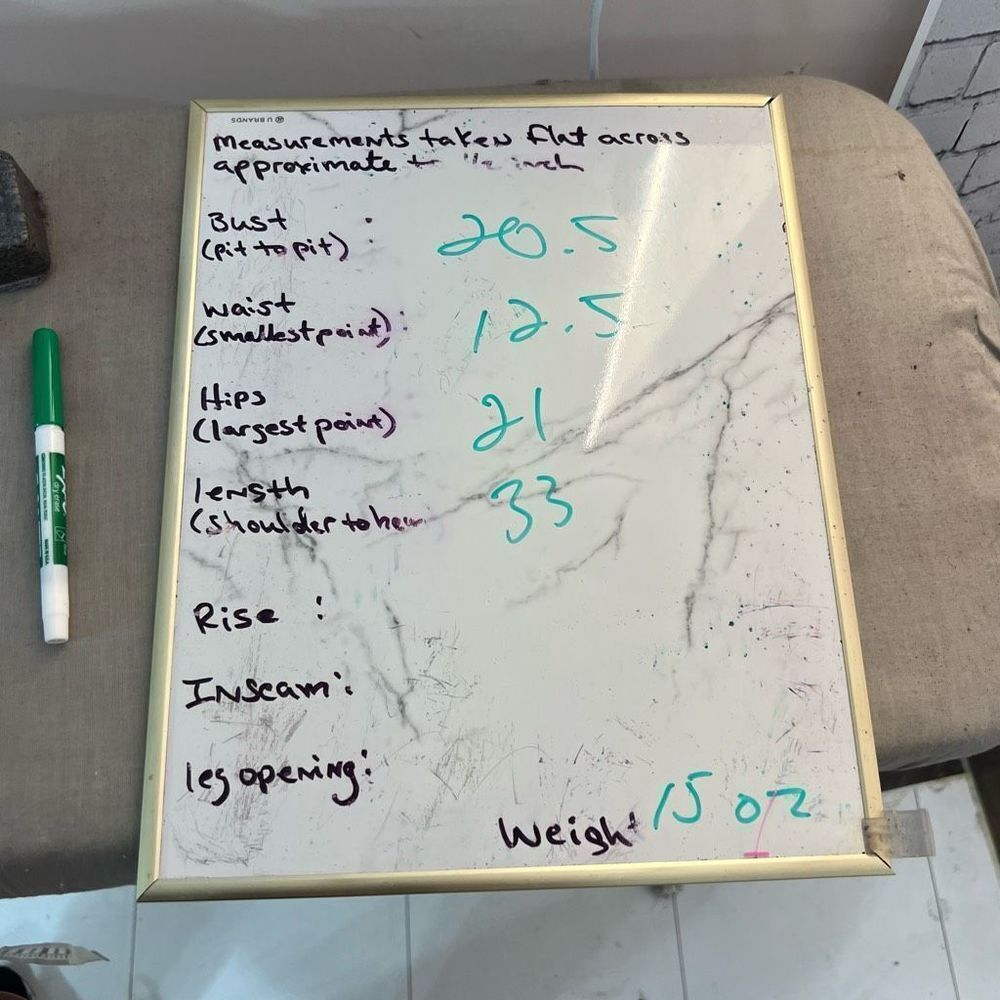 U BRANDS
Measurements taken flat across
approximate to 1/2 inch
Bust : 20.5
(pit to pit)
waist 12.5
(smallest point) :
Hips 21
(largest point)
length 33
(shoulder to hem
Rise :
Inseam :
leg opening :
Weight 15 oz